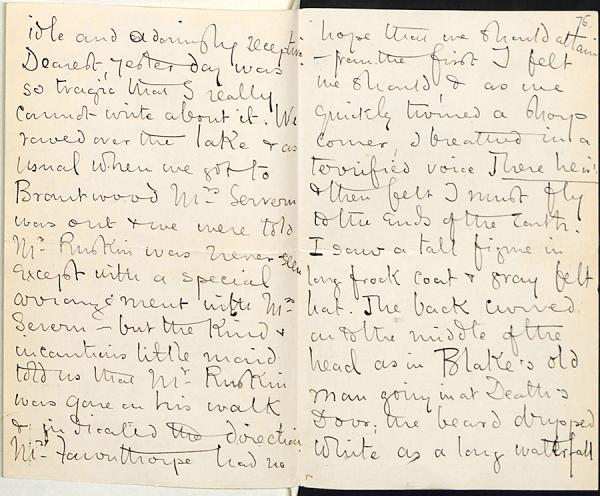 idle and adoringly receptive.
Dearest, yester day was
so tragic that I really
cannot write about it. We
rowed over the lake & as
usual when we got to
Brantwood Mrs Severn
was out & we were told
Mr Ruskin was never seen
except with a special
arrangement with Mrs
Severn – but the kind &
incautious little maid
told us that Mr Ruskin
was gone on his walk
& indicated the direction
Mr Faunthorpe had no
76.
hope that we should attain
– from the first I felt
we should, & as we
quickly turned a sharp
corner, I breathed in a
terrified voice There he is!
& then felt I must fly
to the Ends of the Earth.
I saw a tall figure in
long frock coat & gray felt
hat. The back curved
on to the middle of the
head as in Blake's old
man going in at Death's
Door, the beard dripped
white as a long waterfall